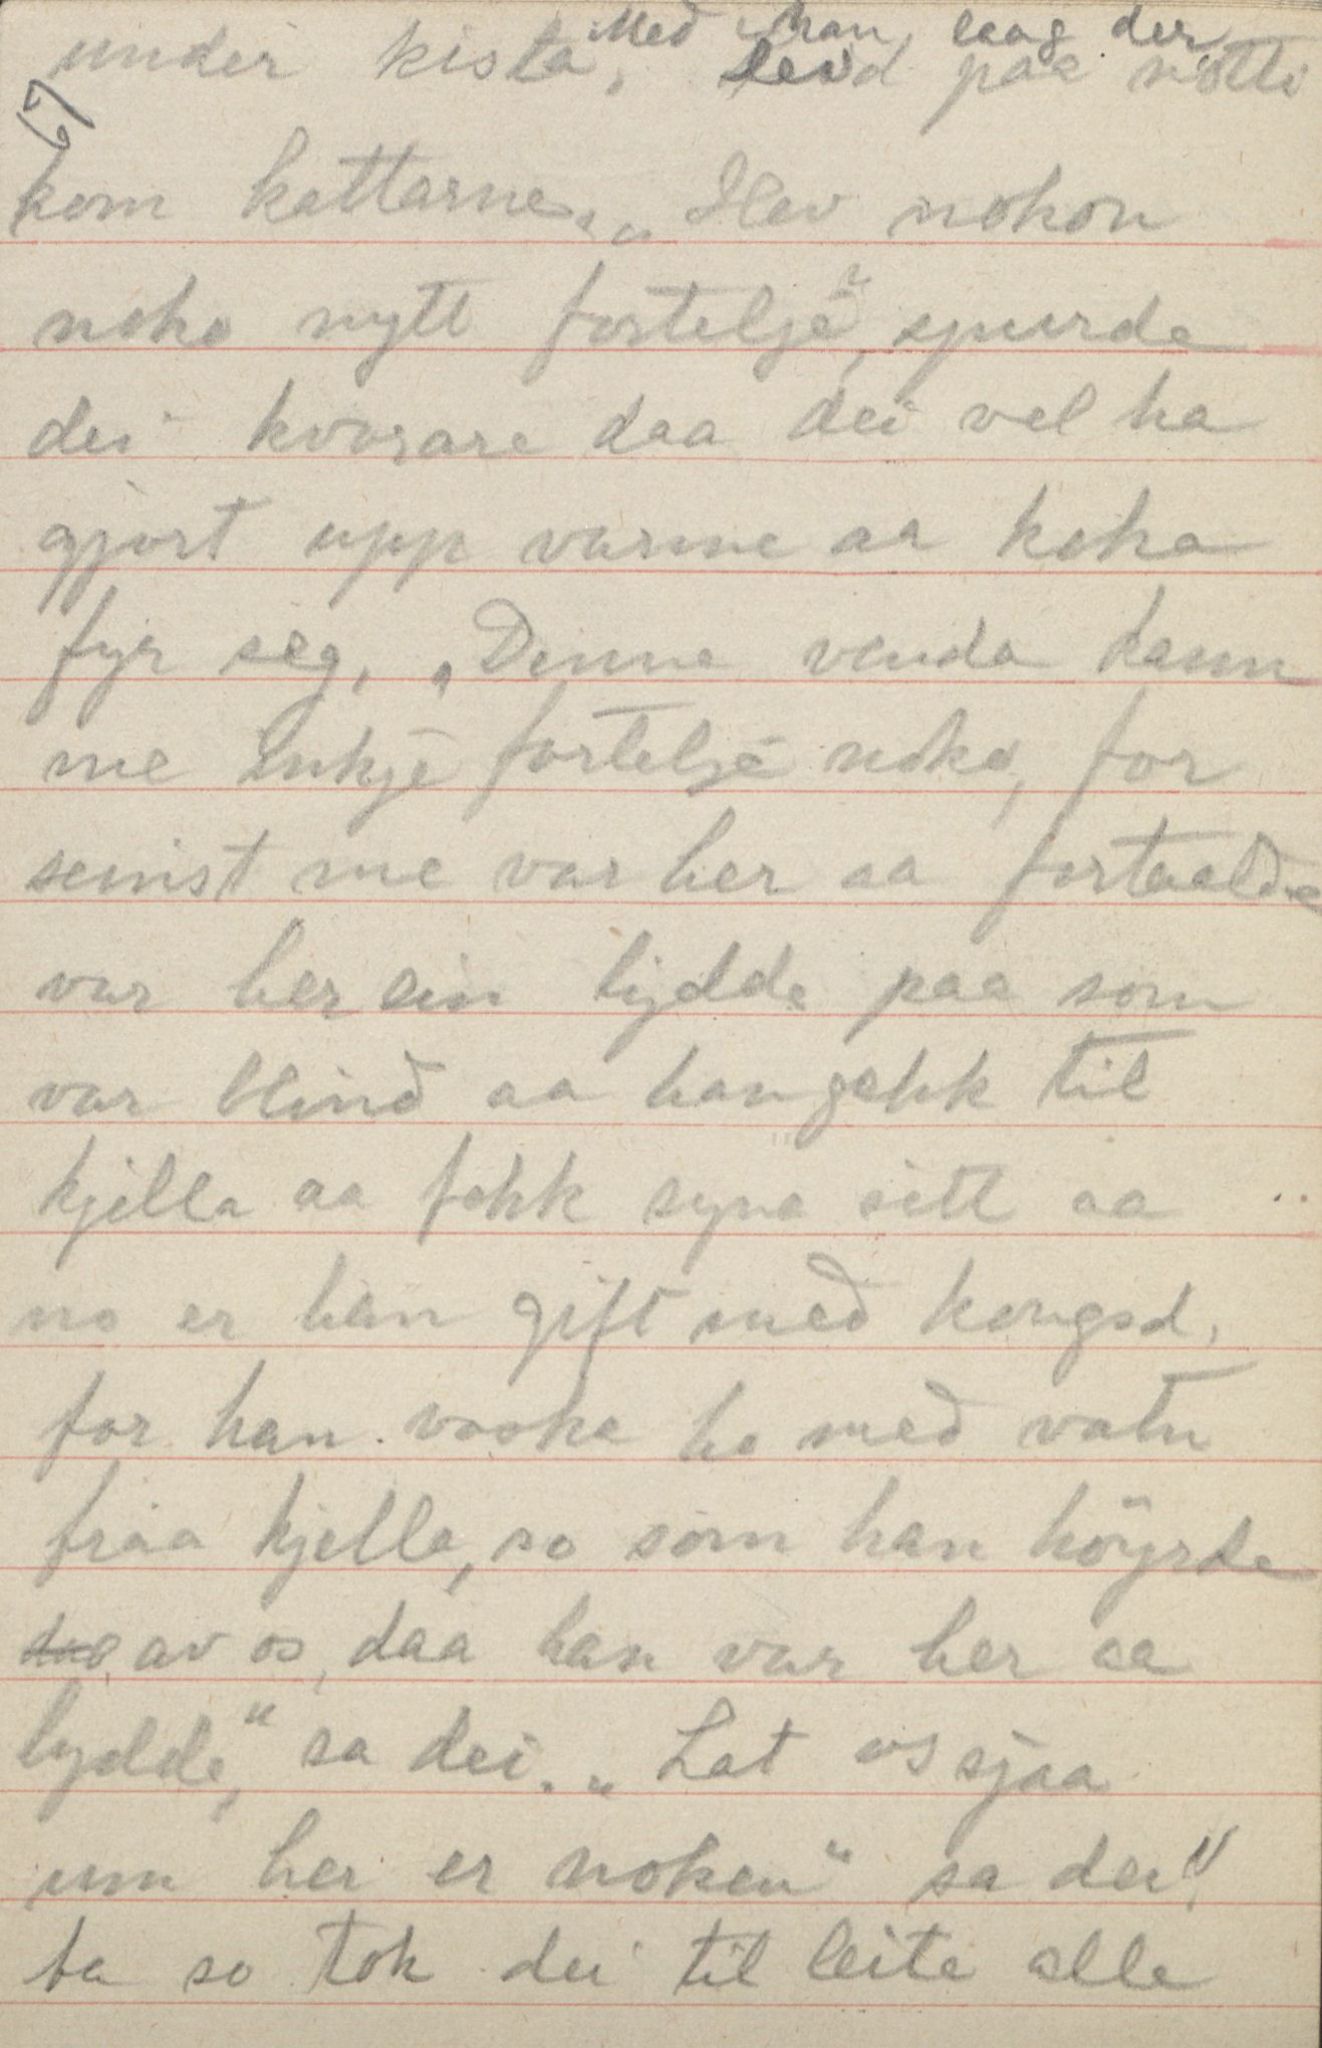 Med han laag der
under kista, leid paa notti
67
kom kattarne. „Hev nokon
noko nytt fortelje", spurde
dei kvorare daa dei vel ha
gjort upp varme aa koka
fyr seg. „Denne venda kann
me inkje fortelje noko, for
seinist me var her aa fortaalde
var her ein lydde paa som
var blind aa han gekk til
kjella aa fekk syna sitt aa
no er han gift med kongsd.
for han vaska ho med vatn
fraa kjella, so som han höyrde
av os, daa han var her aa
lydde," sa dei. „Lat os sjaa
um her er noken" sa dei"
Ja so tok dei til leite alle